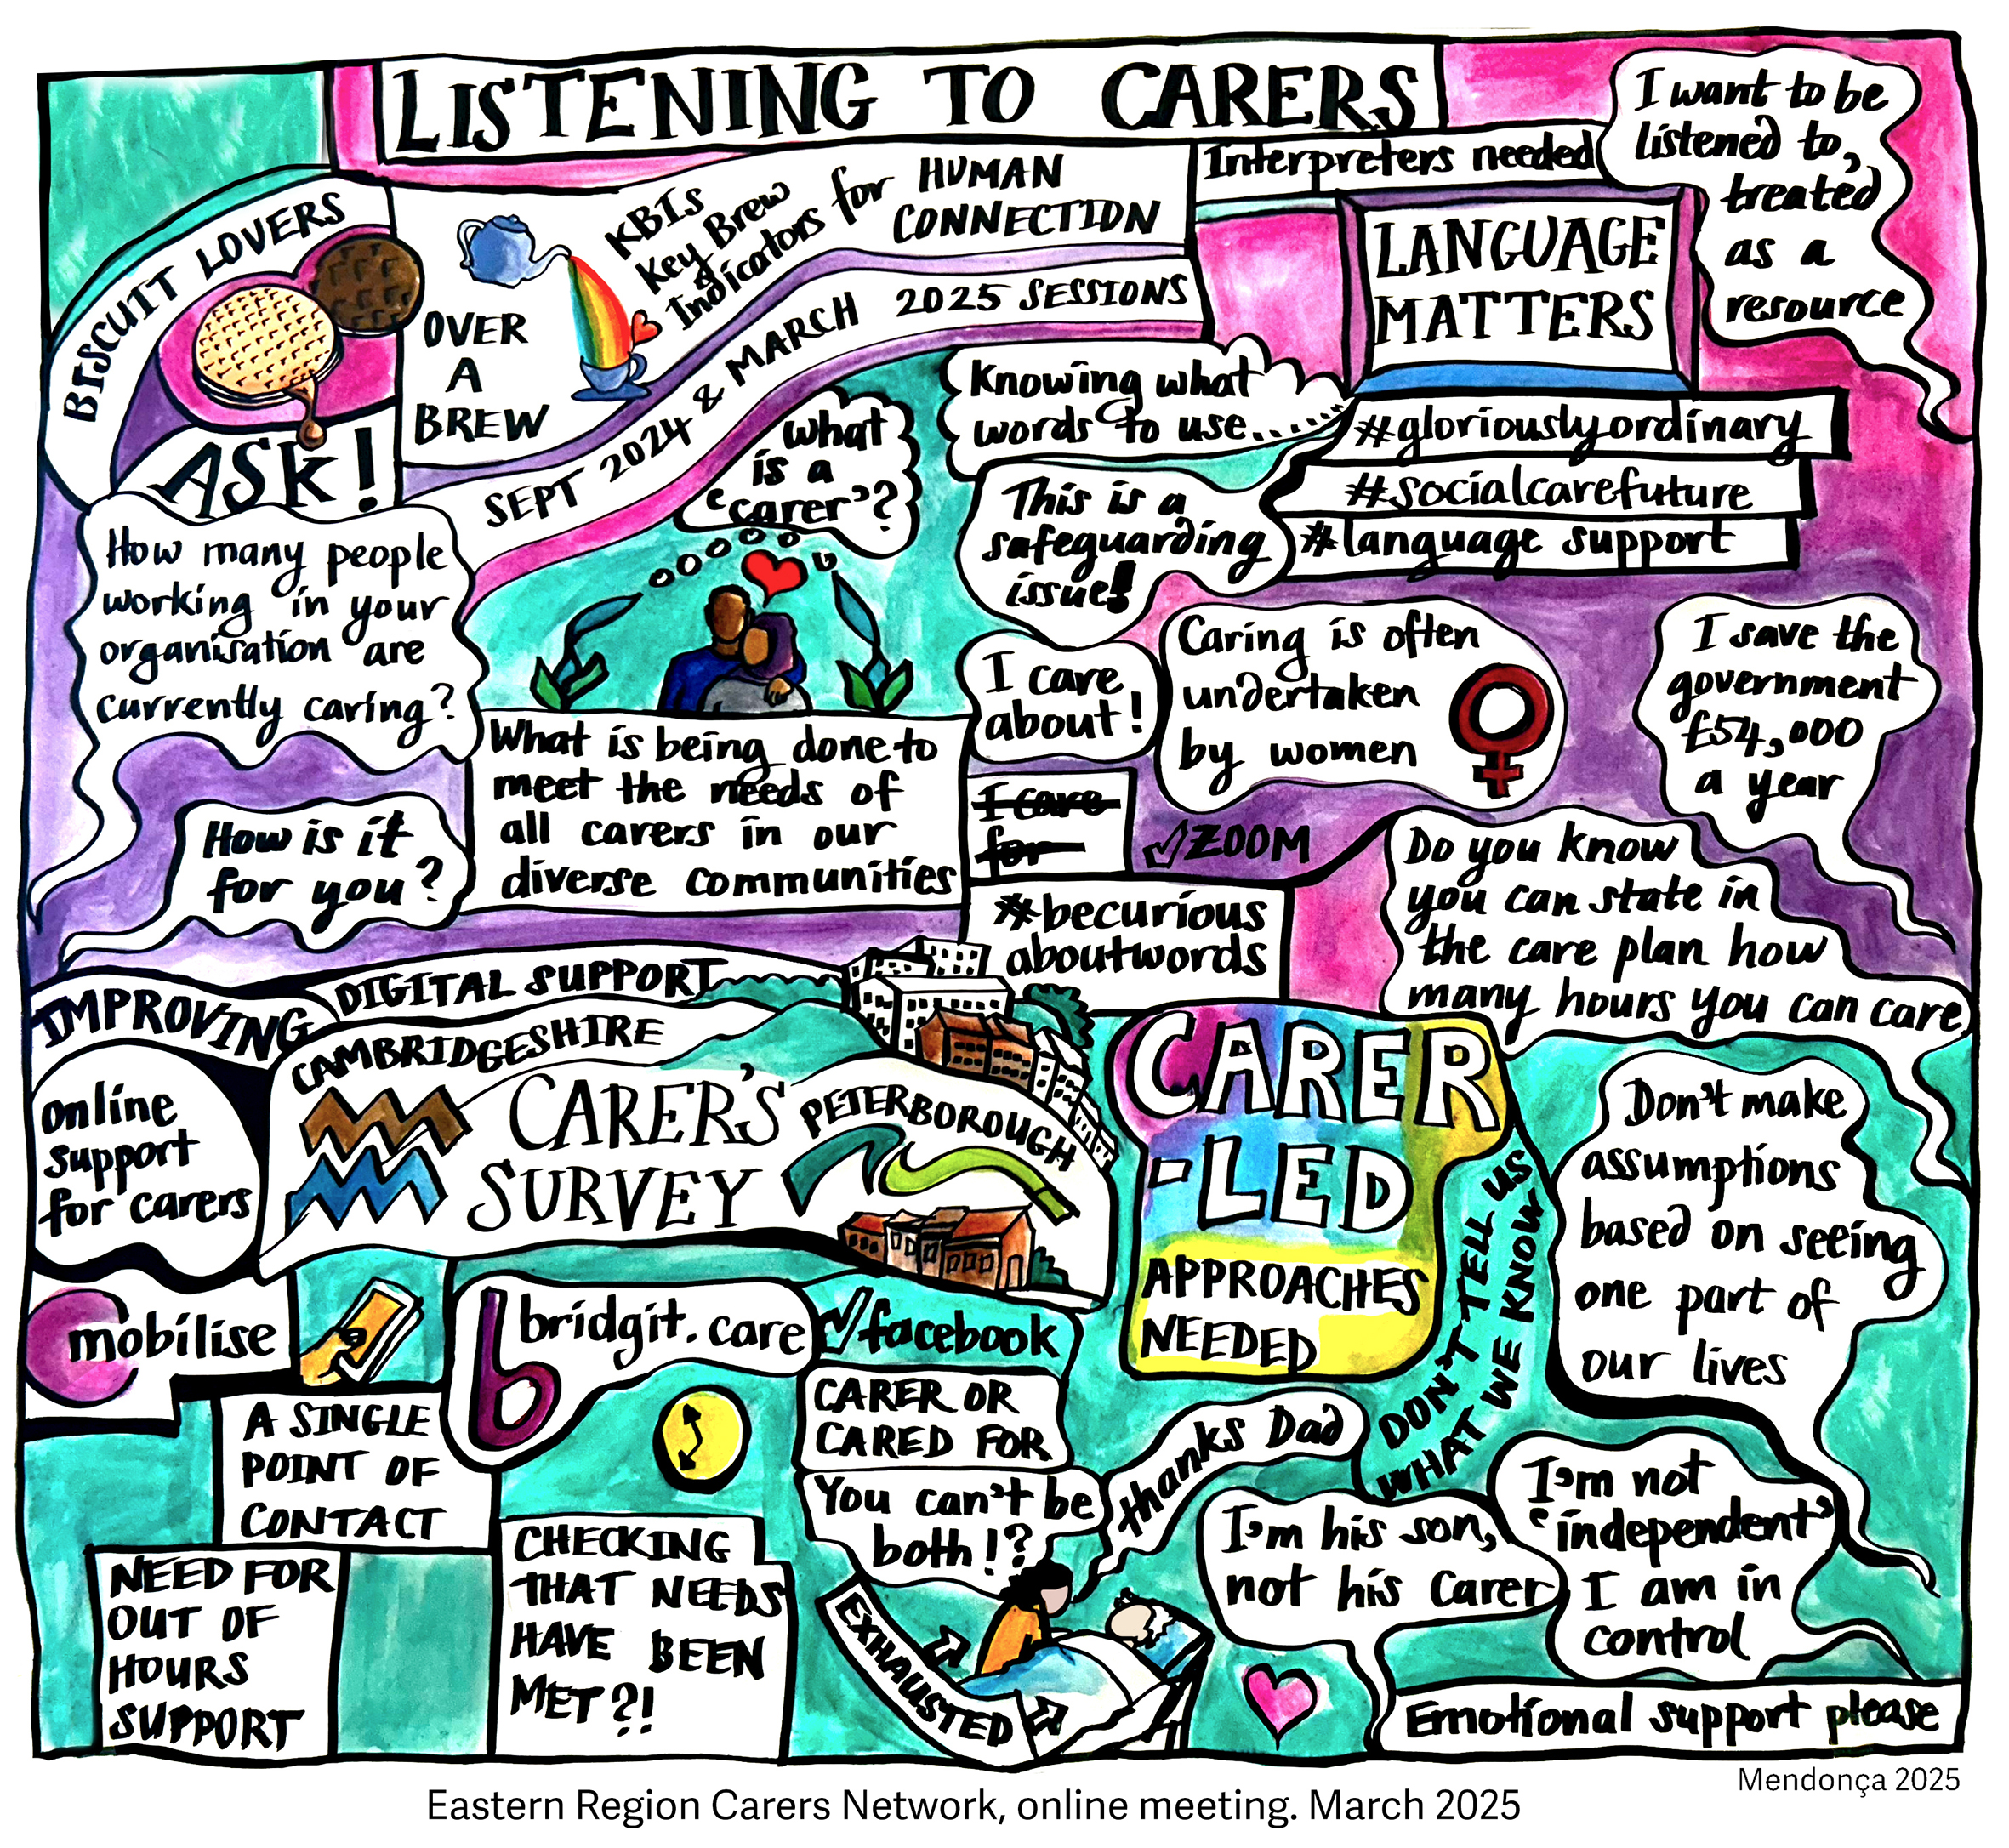 LISTENING TO CARERS
BISCUIT LOVERS
ASK!
OVER
A
BREW
KBIs
Key Brew
Indicators for
HUMAN
CONNECTION
SEPT 2024 & MARCH 2025 SESSIONS
Interpreters needed
LANGUAGE
MATTERS
I want to be
listened to,
treated
as a
resource
what
is a
'carer'?
Knowing what
words to use.....
#gloriouslyordinary
#socialcarefuture
#language support
This is a
safeguarding
issue!
How many people
working in your
organisation are
currently caring?
How is it
for you?
What is being done to
meet the needs of
all carers in our
diverse communities
I care
about!
I care
for
Caring is often
undertaken
by women
I save the
government
£54,000
a year
ZOOM
#becurious
aboutwords
Do you know
you can state in
the care plan how
many hours you can care
IMPROVING
DIGITAL SUPPORT
online
support
for carers
CAMBRIDGESHIRE
CARER'S
SURVEY
PETERBOROUGH
CARER
-LED
APPROACHES
NEEDED
DON'T TELL US
WHAT WE KNOW
Don't make
assumptions
based on seeing
one part of
our lives
mobilise
bridgit.care
facebook
A SINGLE
POINT OF
CONTACT
NEED FOR
OUT OF
HOURS
SUPPORT
CHECKING
THAT NEEDS
HAVE BEEN
MET?!
CARER OR
CARED FOR
You can't be
both!?
EXHAUSTED
thanks Dad
I'm his son,
not his carer
I'm not
'independent'
I am in
control
Emotional support please
Mendonça 2025
Eastern Region Carers Network, online meeting. March 2025